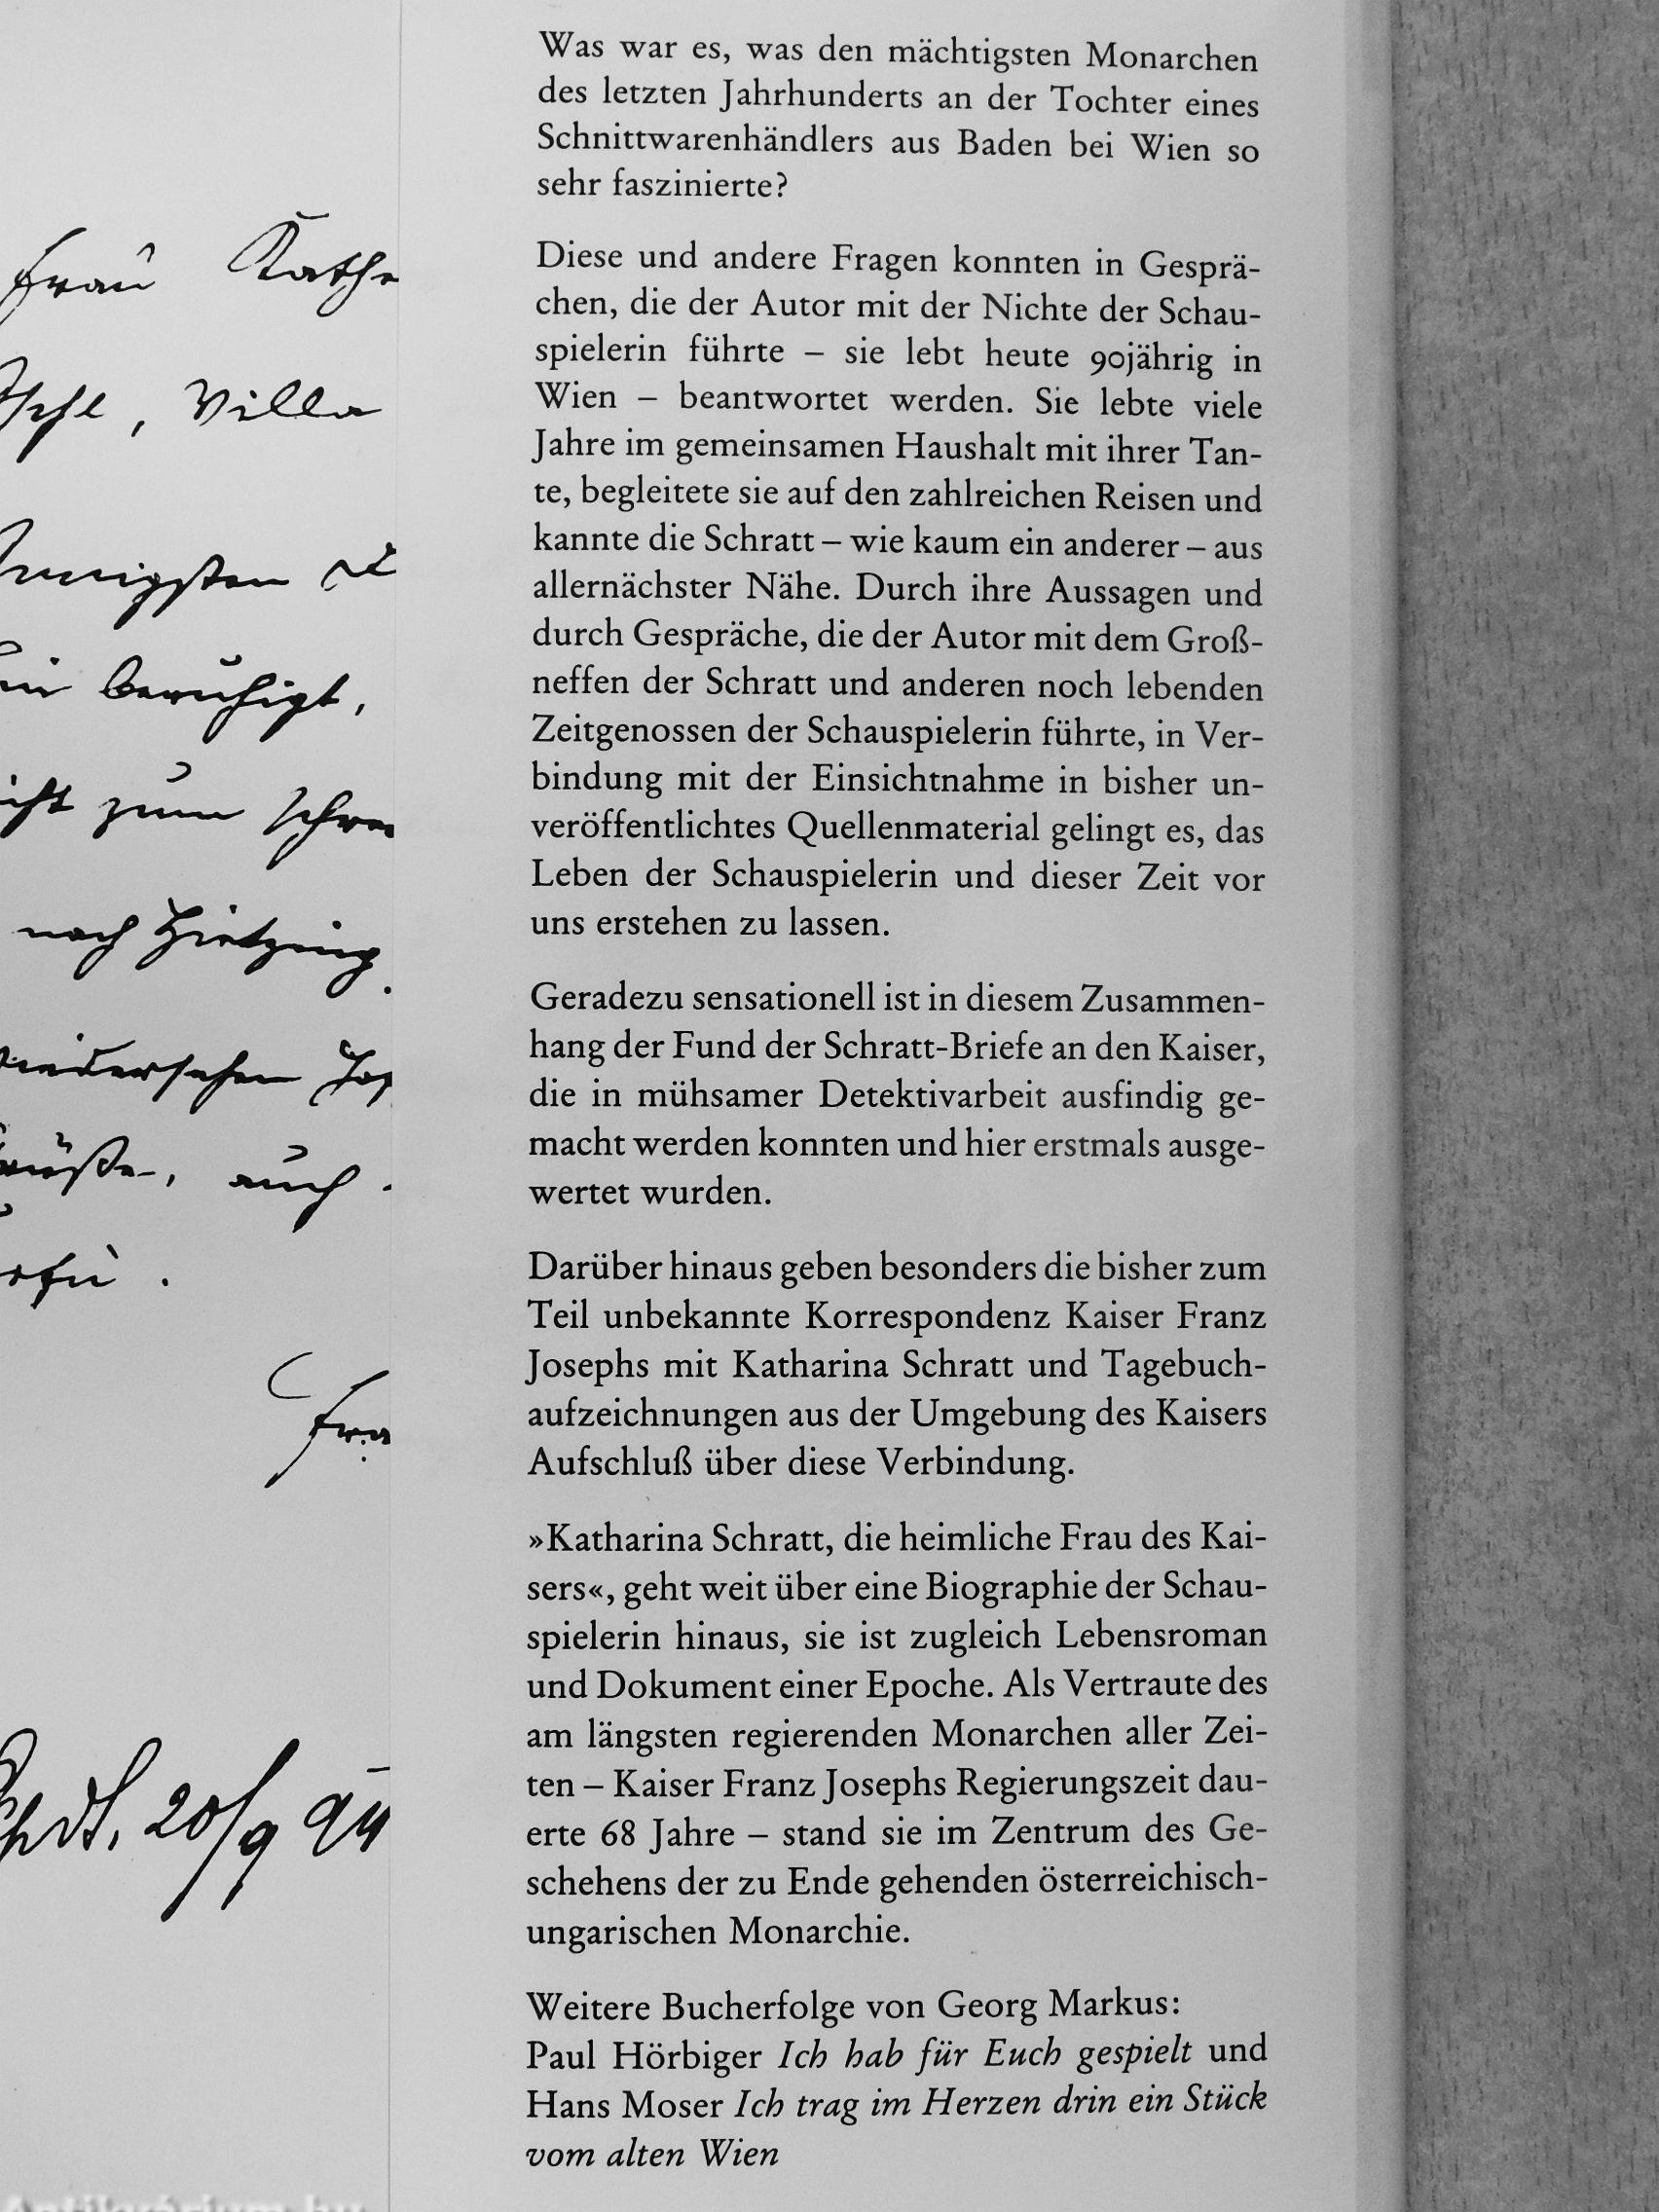 Frau Kath
Villa
beruhigt,
zum
nach Hietzing.
auch
20/9 94
Was war es, was den mächtigsten Monarchen
des letzten Jahrhunderts an der Tochter eines
Schnittwarenhändlers aus Baden bei Wien so
sehr faszinierte?
Diese und andere Fragen konnten in Gesprä-
chen, die der Autor mit der Nichte der Schau-
spielerin führte – sie lebt heute 90jährig in
Wien – beantwortet werden. Sie lebte viele
Jahre im gemeinsamen Haushalt mit ihrer Tan-
te, begleitete sie auf den zahlreichen Reisen und
kannte die Schratt – wie kaum ein anderer – aus
allernächster Nähe. Durch ihre Aussagen und
durch Gespräche, die der Autor mit dem Groß-
neffen der Schratt und anderen noch lebenden
Zeitgenossen der Schauspielerin führte, in Ver-
bindung mit der Einsichtnahme in bisher un-
veröffentlichtes Quellenmaterial gelingt es, das
Leben der Schauspielerin und dieser Zeit vor
uns erstehen zu lassen.
Geradezu sensationell ist in diesem Zusammen-
hang der Fund der Schratt-Briefe an den Kaiser,
die in mühsamer Detektivarbeit ausfindig ge-
macht werden konnten und hier erstmals ausge-
wertet wurden.
Darüber hinaus geben besonders die bisher zum
Teil unbekannte Korrespondenz Kaiser Franz
Josephs mit Katharina Schratt und Tagebuch-
aufzeichnungen aus der Umgebung des Kaisers
Aufschluß über diese Verbindung.
»Katharina Schratt, die heimliche Frau des Kai-
sers«, geht weit über eine Biographie der Schau-
spielerin hinaus, sie ist zugleich Lebensroman
und Dokument einer Epoche. Als Vertraute des
am längsten regierenden Monarchen aller Zei-
ten – Kaiser Franz Josephs Regierungszeit dau-
erte 68 Jahre – stand sie im Zentrum des Ge-
schehens der zu Ende gehenden österreichisch-
ungarischen Monarchie.
Weitere Bucherfolge von Georg Markus:
Paul Hörbiger Ich hab für Euch gespielt und
Hans Moser Ich trag im Herzen drin ein Stück
vom alten Wien